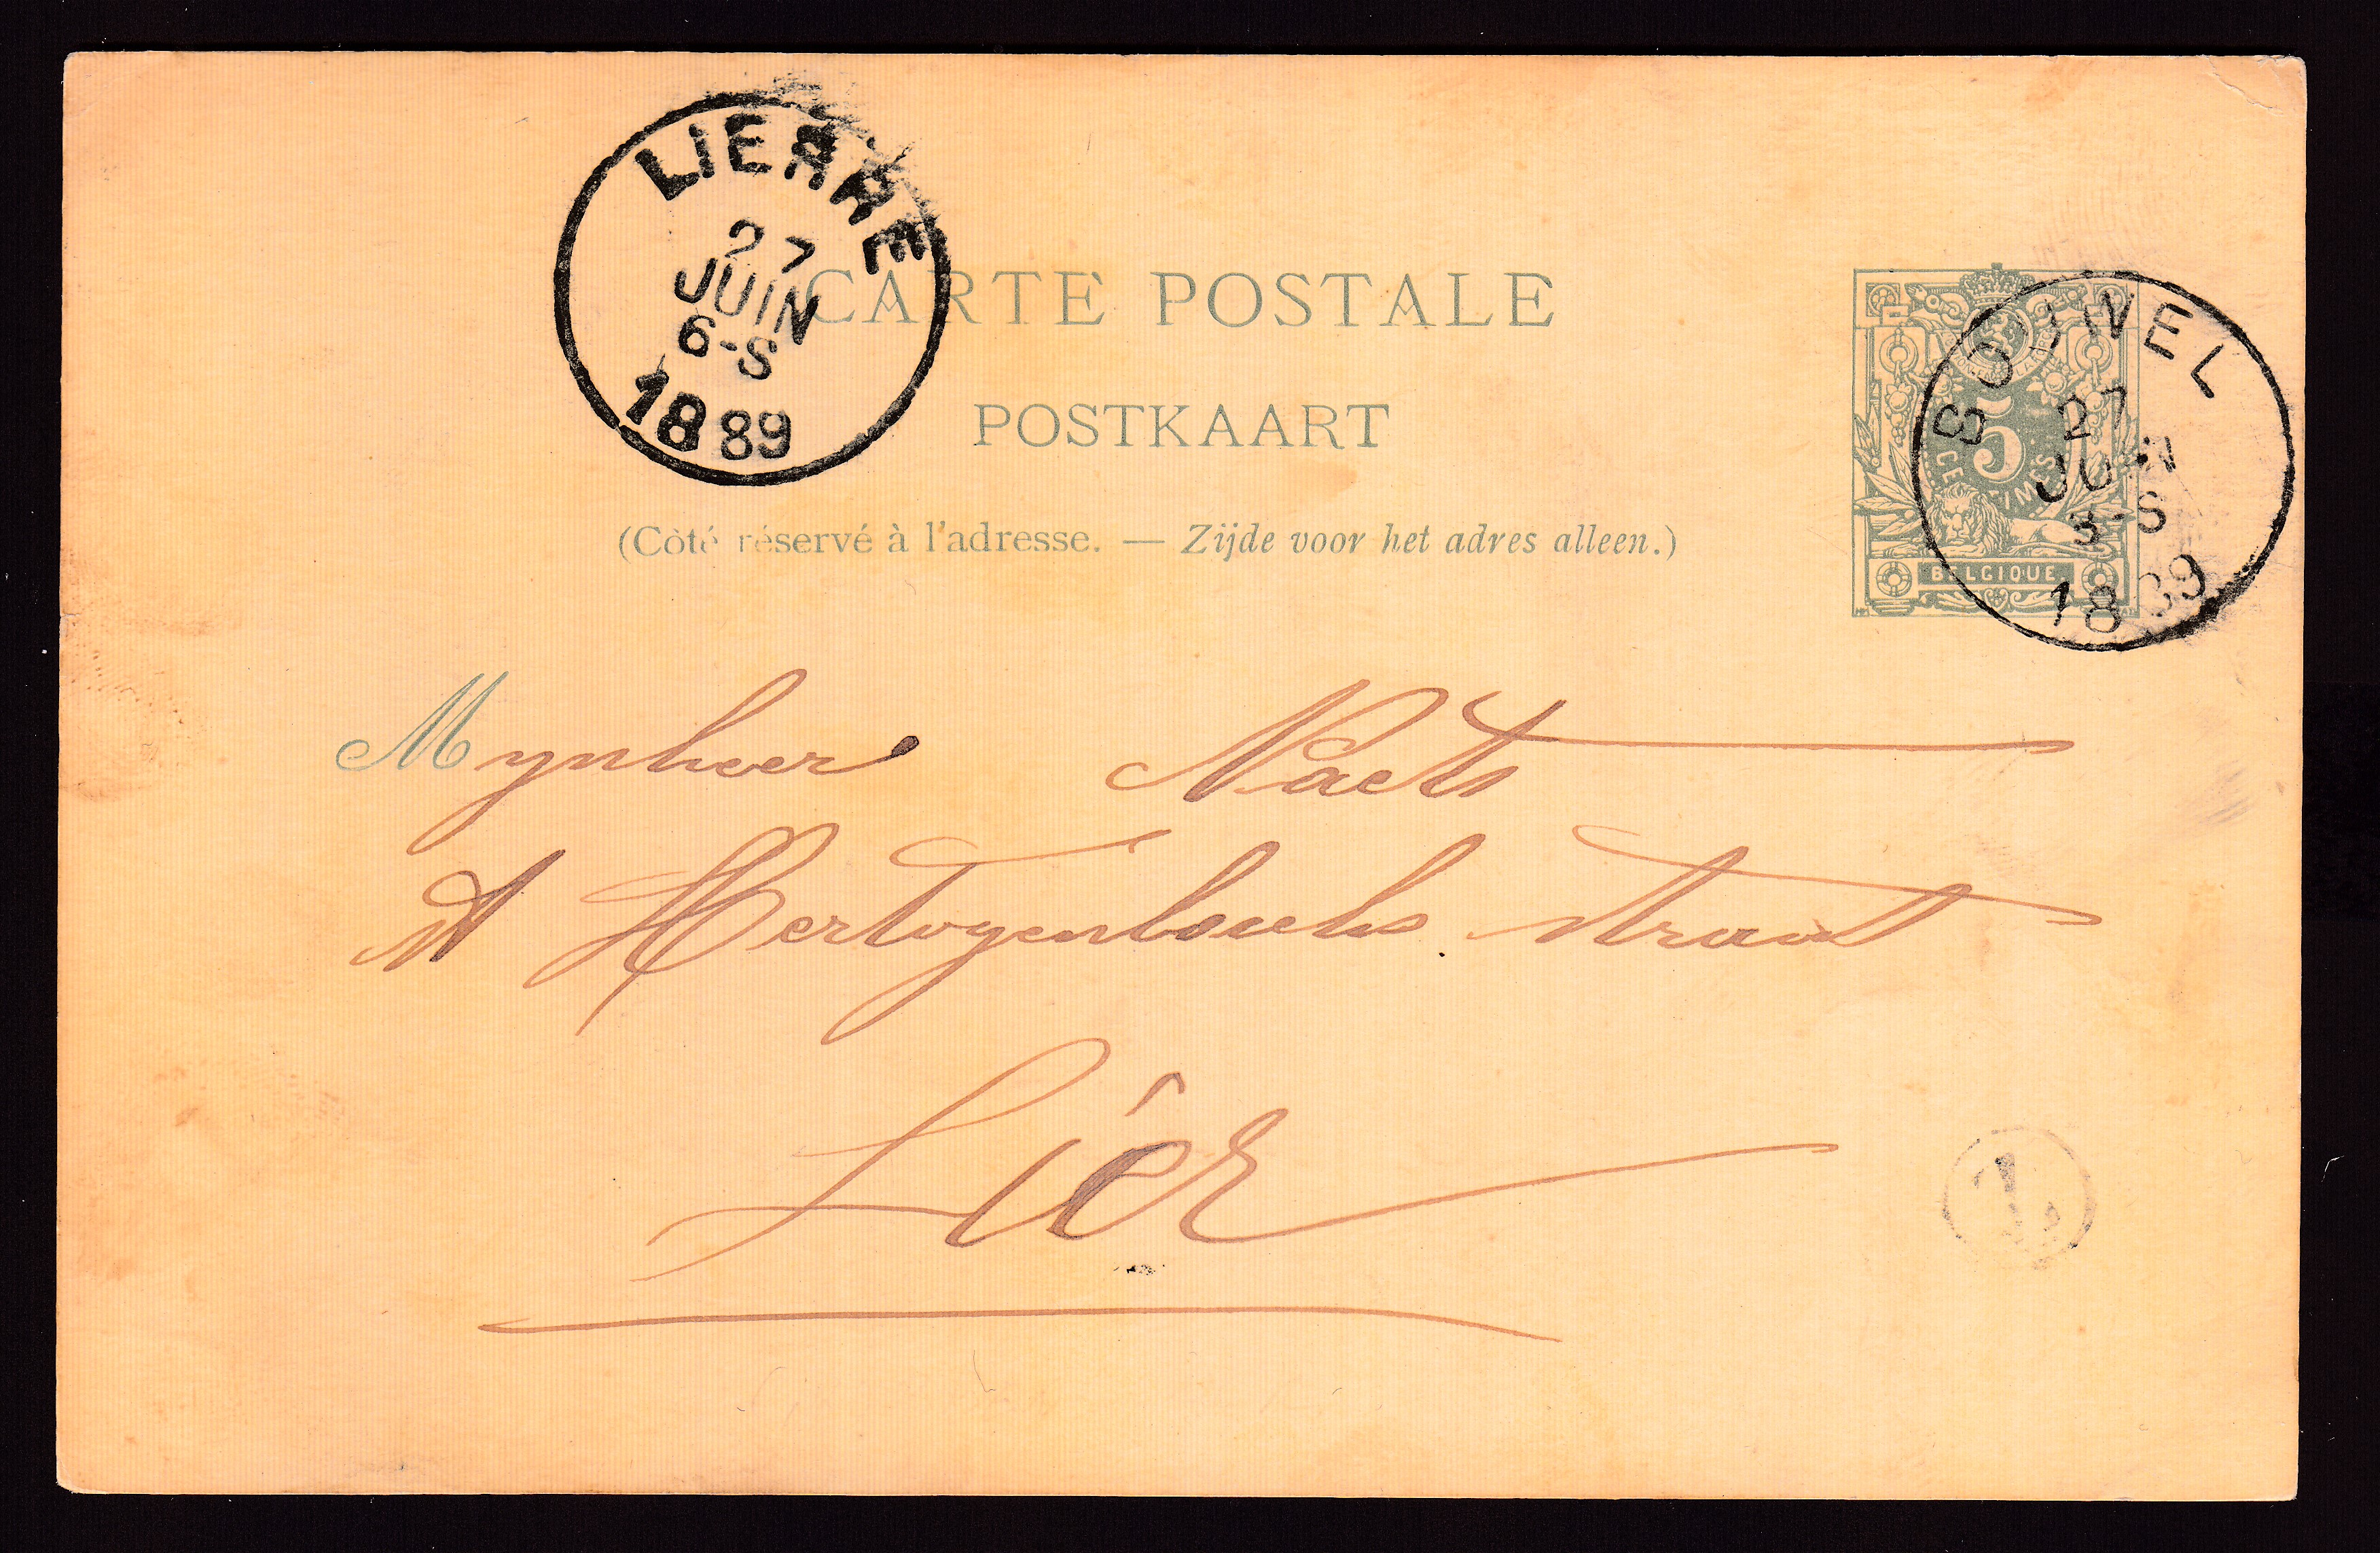 LIERRE
27
JUIN
6-S
1889
CARTE POSTALE
POSTKAART
(Côté réservé à l'adresse. — Zijde voor het adres alleen.)
5
CENTIMES
BELGIQUE
BOUWEL
27
JUIN
3-S
1889
Mynheer Naets
St Hertogenbosch straat
Liér
1